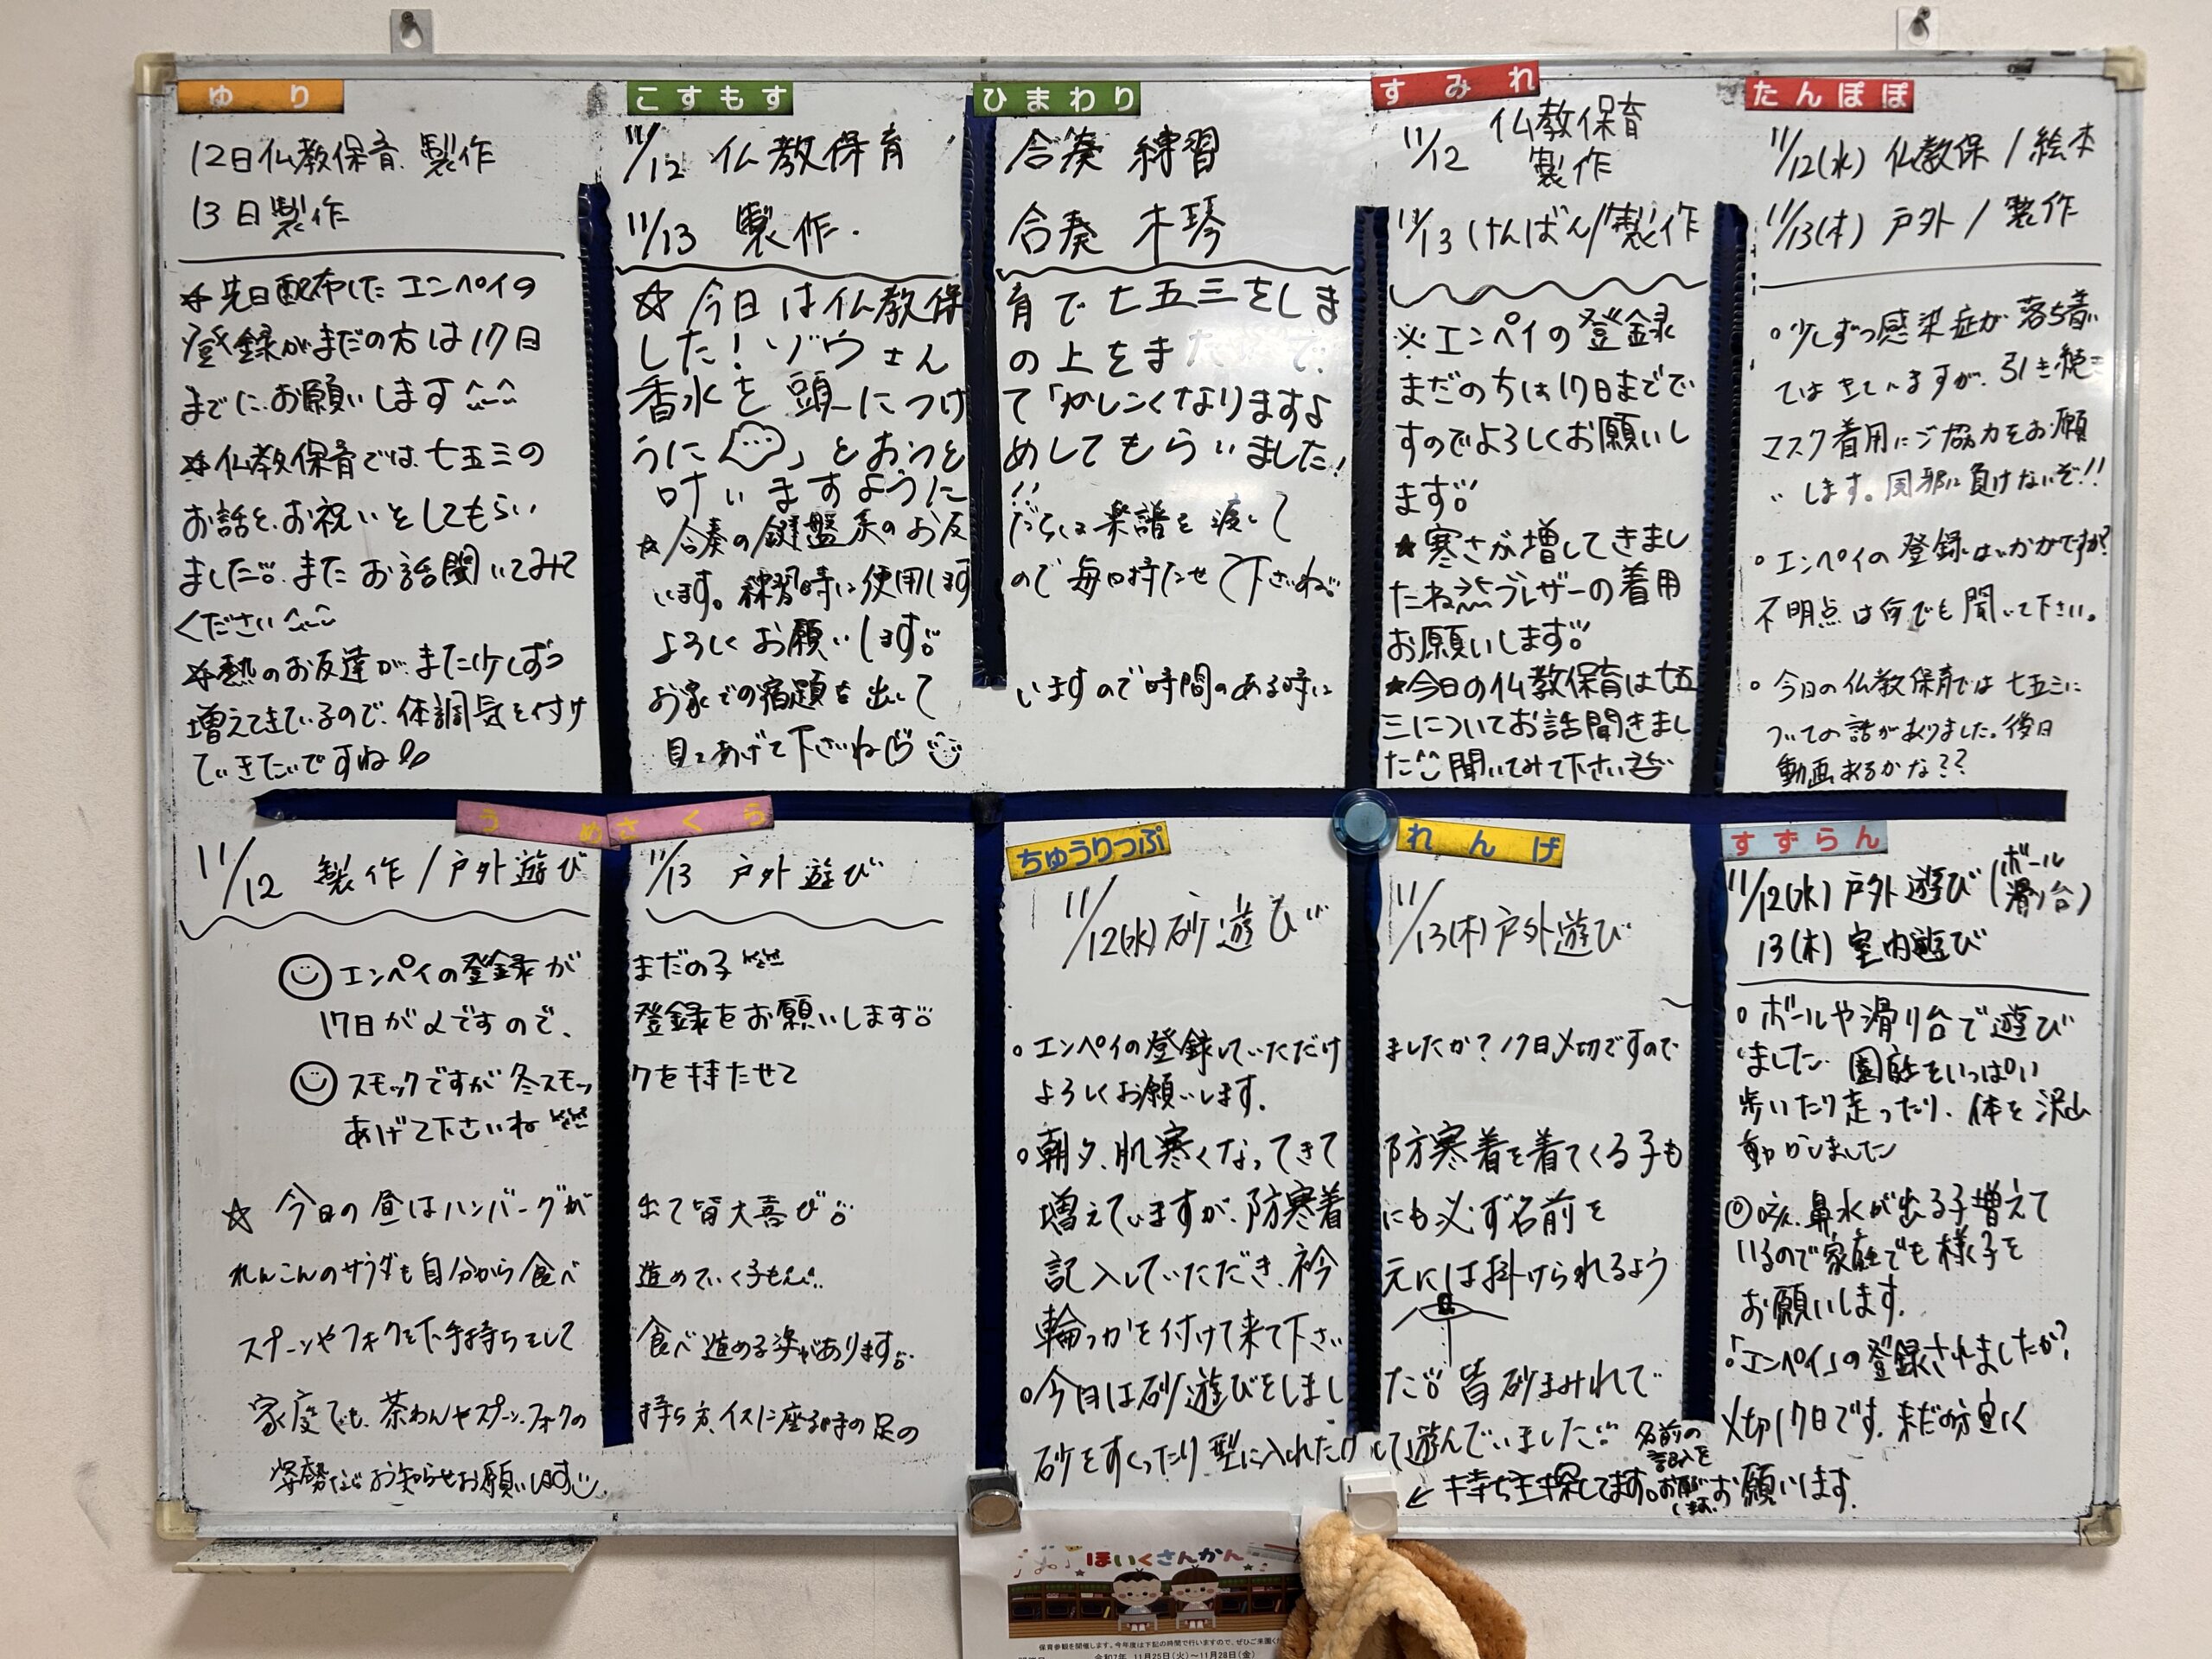 ゆり
12日仏教保育. 製作
13日製作
☆先日配布したエンペイの
登録がまだの方は17日
までに.お願いします
☆仏教保育では.七五三の
お話を.お祝いをしてもらい
ました。また お話聞いてみて
ください
☆熱のお友達が.また少しずつ
増えてきているので.体調気を付け
ていきたいですね
こすもす
11/12 仏教保育
11/13 製作.
ひまわり
合奏 練習
合奏 木琴
☆今日は仏教保育で七五三をしま
した!ゾウさんの上をま
香水を頭につけて「かしこくなりますよ
うに」とおつとめしてもらいました!
叶いますように!!
☆合奏の鍵盤系のお友だちは楽譜を渡して
います。練習時に使用しますので毎日持たせて下さいね
よろしくお願いします。
お家での宿題を出していますので時間のある時に
見てあげて下さいね
すみれ
11/12 仏教保育
製作
11/13 けんばん/製作
※エンペイの登録
まだの方は17日までで
すのでよろしくお願いし
ます
★寒さが増してきまし
たね ブレザーの着用
お願いします
★今日の仏教保育は七五
三についてお話聞きまし
た 聞いてみて下さい
たんぽぽ
11/12(水) 仏教保/絵本
11/13(木) 戸外/製作
○少しずつ感染症が落ち着い
てはきていますが、引き続き
マスク着用にご協力をお願
いします。風邪に負けないぞ!!
○エンペイの登録はいかがですか?
不明点は何でも聞いて下さい。
○今日の仏教保育では七五三に
ついての話がありました。後日
動画あるかな??
うめ
11/12 製作/戸外遊び
さくら
11/13 戸外遊び
エンペイの登録がまだの子
17日が〆ですので、登録をお願いします
スモックですが冬スモックを持たせて
あげて下さいね
☆今日の昼はハンバーグが出て皆大喜び
れんこんのサラダも自分から食べ進めていく子も
スプーンやフォークを下手持ちをして食べ進める姿があります
家庭でも、茶わんやスプーン、フォークの持ち方、イスに座る時の足の
姿勢などお知らせお願いします
ちゅうりっぷ
11/12(水)砂遊び
れんげ
11/13(木)戸外遊び
○エンペイの登録していただけましたか?17日〆切ですので
よろしくお願いします.
○朝夕、肌寒くなってきて防寒着を着てくる子も
増えていますが、防寒着にも必ず名前を
記入していただき、衿元には掛けられるよう
輪っかを付けて来て下さい
○今日は砂遊びをしました 皆砂まみれで
砂をすくったり型に入れたりして遊んでいました
←持ち主探してます。
名前の
記入を
お願い
します.
すずらん
11/12(水)戸外遊び(ボール
滑り台)
13(木) 室内遊び
○ボールや滑り台で遊び
ました 園庭をいっぱい
歩いたり走ったり、体を沢山
動かしました
◎咳、鼻水が出る子増えて
いるので家庭でも様子を
お願いします.
○「エンペイ」の登録されましたか?
〆切17日です.まだの方宜く
お願います.
ほいくさんかん
保育参観を開催します。今年度は下記の時間で行いますので、ぜひご来園く
令和7年 11月25日(火)~11月28日(金)